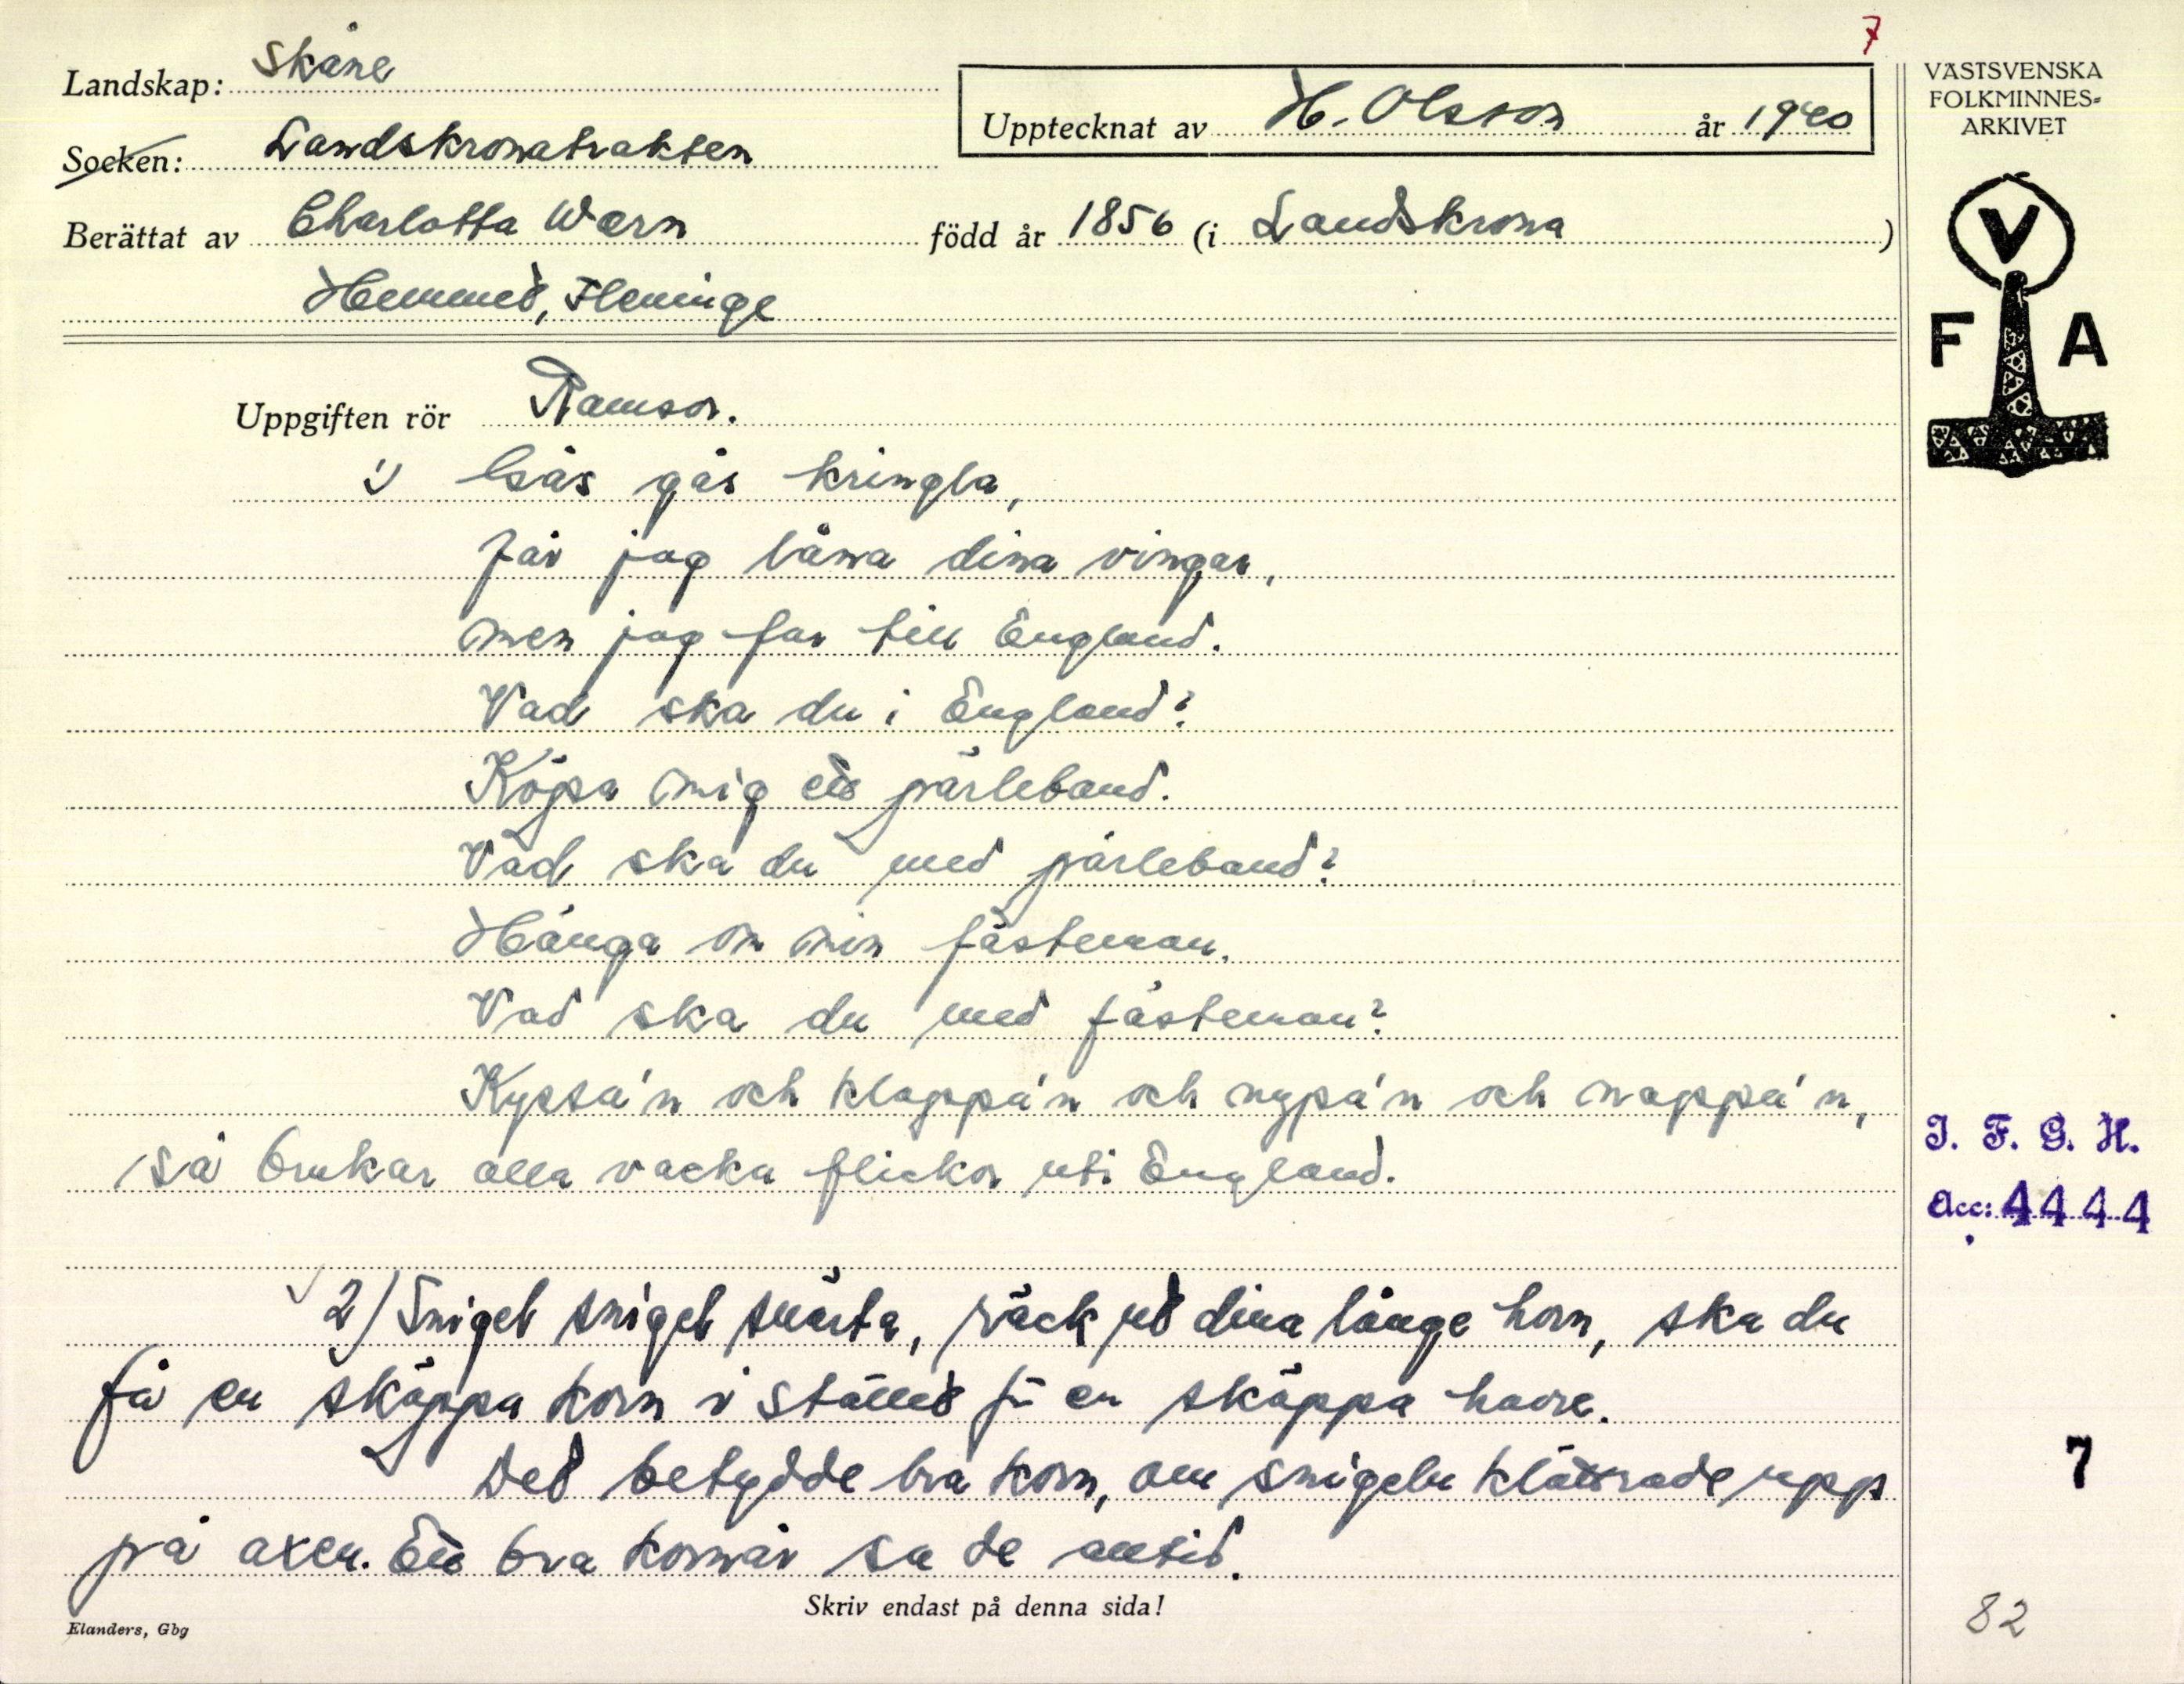 7
Landskap: Skåne
Upptecknat av H. Olsson år 1940
VÄSTSVENSKA
FOLKMINNES-
ARKIVET
Socken: Landskronatrakten
Berättat av Charlotta Wærn född år 1856 (i Landskrona)
Hemmet, Fleninge
V
F A
Uppgiften rör Ramsor.
1) Gås gås kringla,
får jag låna dina vingar,
men jag far till England.
Vad ska du i England?
Köpa mig ett pärleband.
Vad ska du med pärleband?
Hänga om min fästeman.
Vad ska du med fästeman?
Kyssa'n och klappa'n och nypa'n och nappa'n,
så brukar alla vackra flickor uti England.
I. F. G. H.
Acc: 4444
2) Snigel snigel snärta, räck ut dina långe horn, ska du
få en skäppa korn i stället för en skäppa havre.
Det betydde bra korn, om snigeln klättrade upp
på axen. Ett bra kornår sa de alltid.
7
Skriv endast på denna sida!
Elanders, Gbg
82